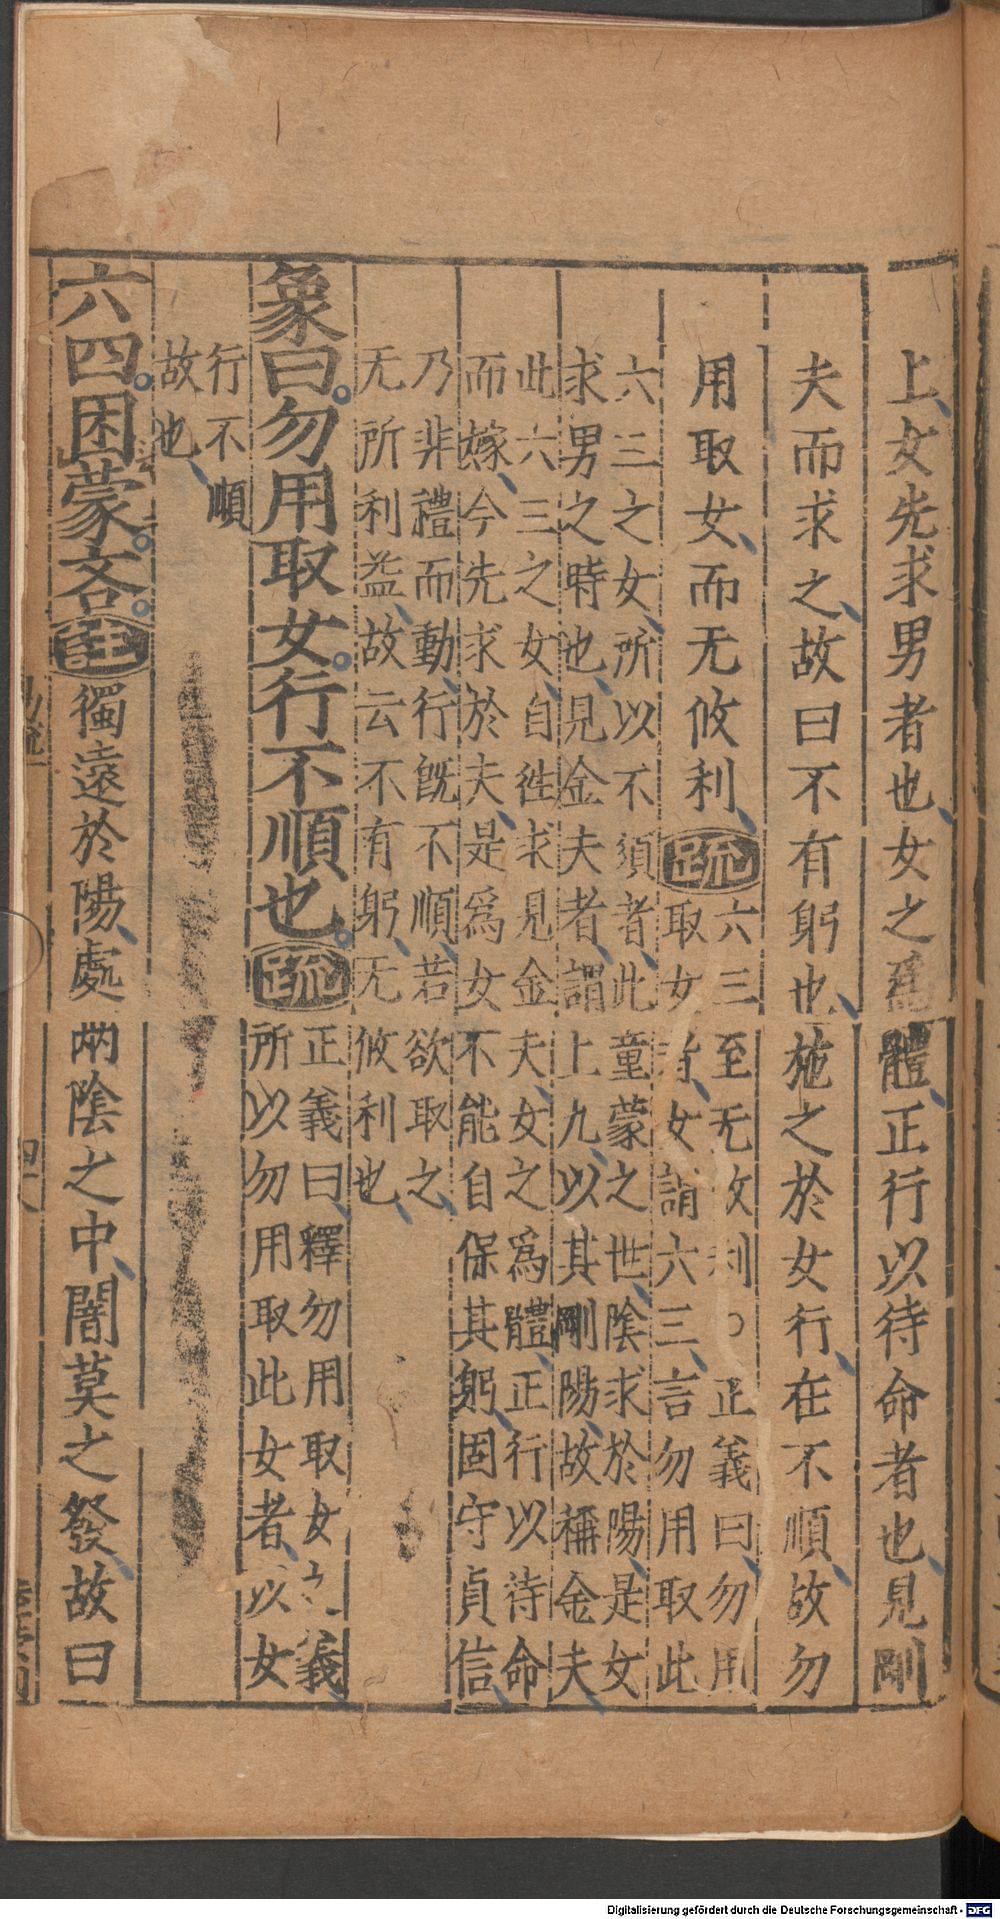 上女先求男者也女之爲體正行以待命者也見剛
夫而求之故曰不有躬也施之於女行在不順故勿
用取女而无攸利疏
六三至无攸利○正義曰勿用
取女者女謂六三言勿用取此
六三之女所以不須者此童蒙之世陰求於陽是女
求男之時也見金夫者謂上九以其剛陽故稱金夫
此六三之女自徃求見金夫女之爲體正行以待命
而嫁今先求於夫是爲女不能自保其躬固守貞信
乃非禮而動行旣不順若欲取之
无所利益故云不有躬无攸利也
象曰。勿用取女。行不順也。疏
正義曰釋勿用取女之義
所以勿用取此女者以女
行不順
故也
六四。困蒙。吝。註獨遠於陽處兩陰之中闇莫之發故曰
Digitalisierung gefördert durch die Deutsche Forschungsgemeinschaft - DFG